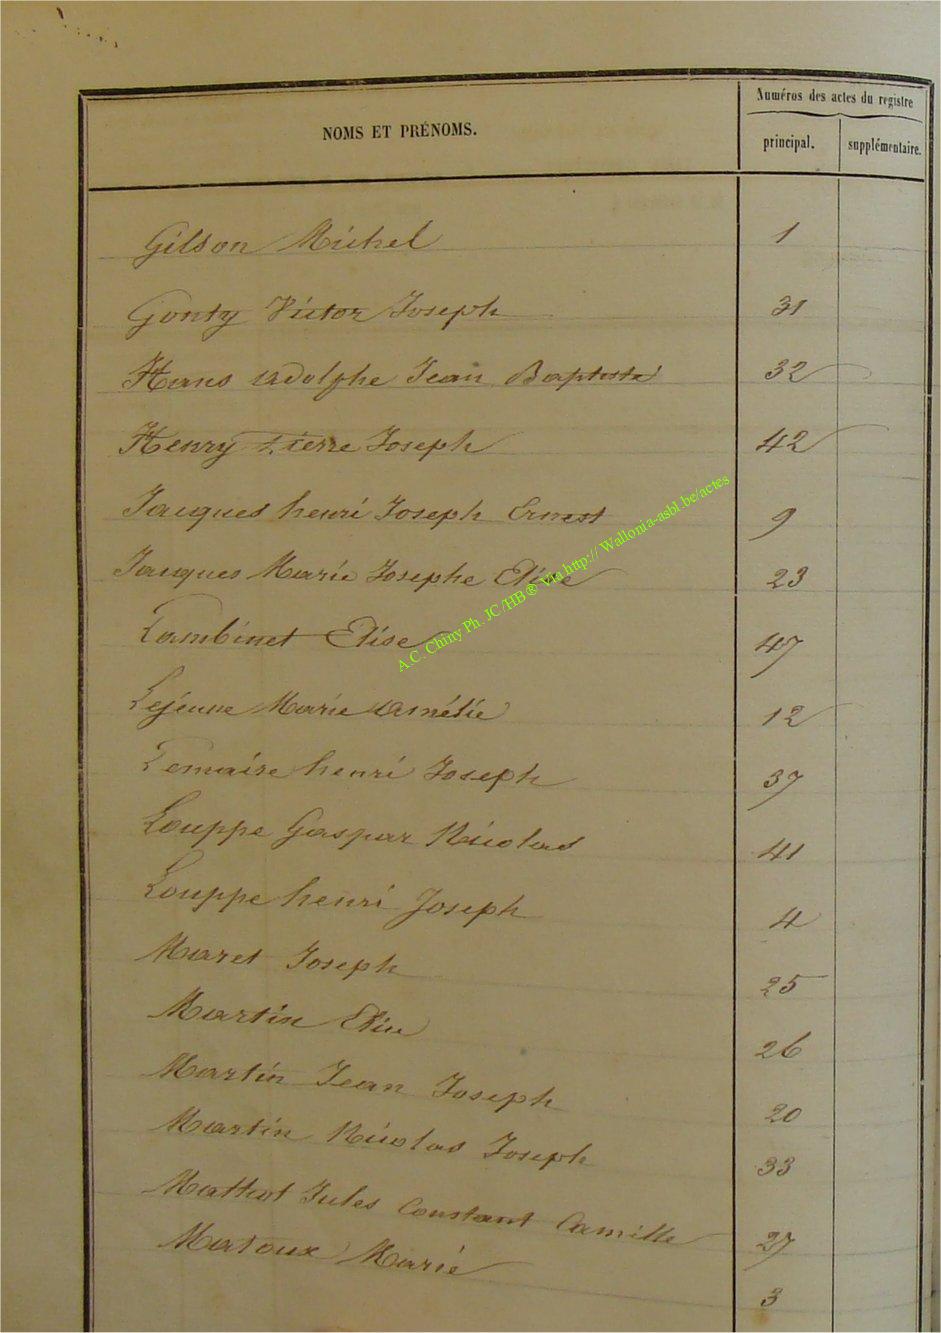 Numéros des actes du registre
NOMS ET PRÉNOMS.
principal. supplémentaire.
Gilson Michel 1
Gonty Victor Joseph 31
Hans Adolphe Jean Baptiste 32
Henry Pierre Joseph 42
Jacques henri Joseph Ernest 9
Jacques Marie Josephe Elise 23
Lambinet Elise 47
Lejeune Marie Amélie 12
Lemaire henri Joseph 37
Louppe Gaspar Nicolas 41
Louppe henri Joseph 4
Maret Joseph 25
Martin 26
Martin Jean Joseph 20
Martin Nicolas Joseph 33
Mathot Jules Constant Camille 27
Matoux Marie 3
A.C. Chiny Ph. JC/HB® Via http:// Wallonia-asbl.be/actes